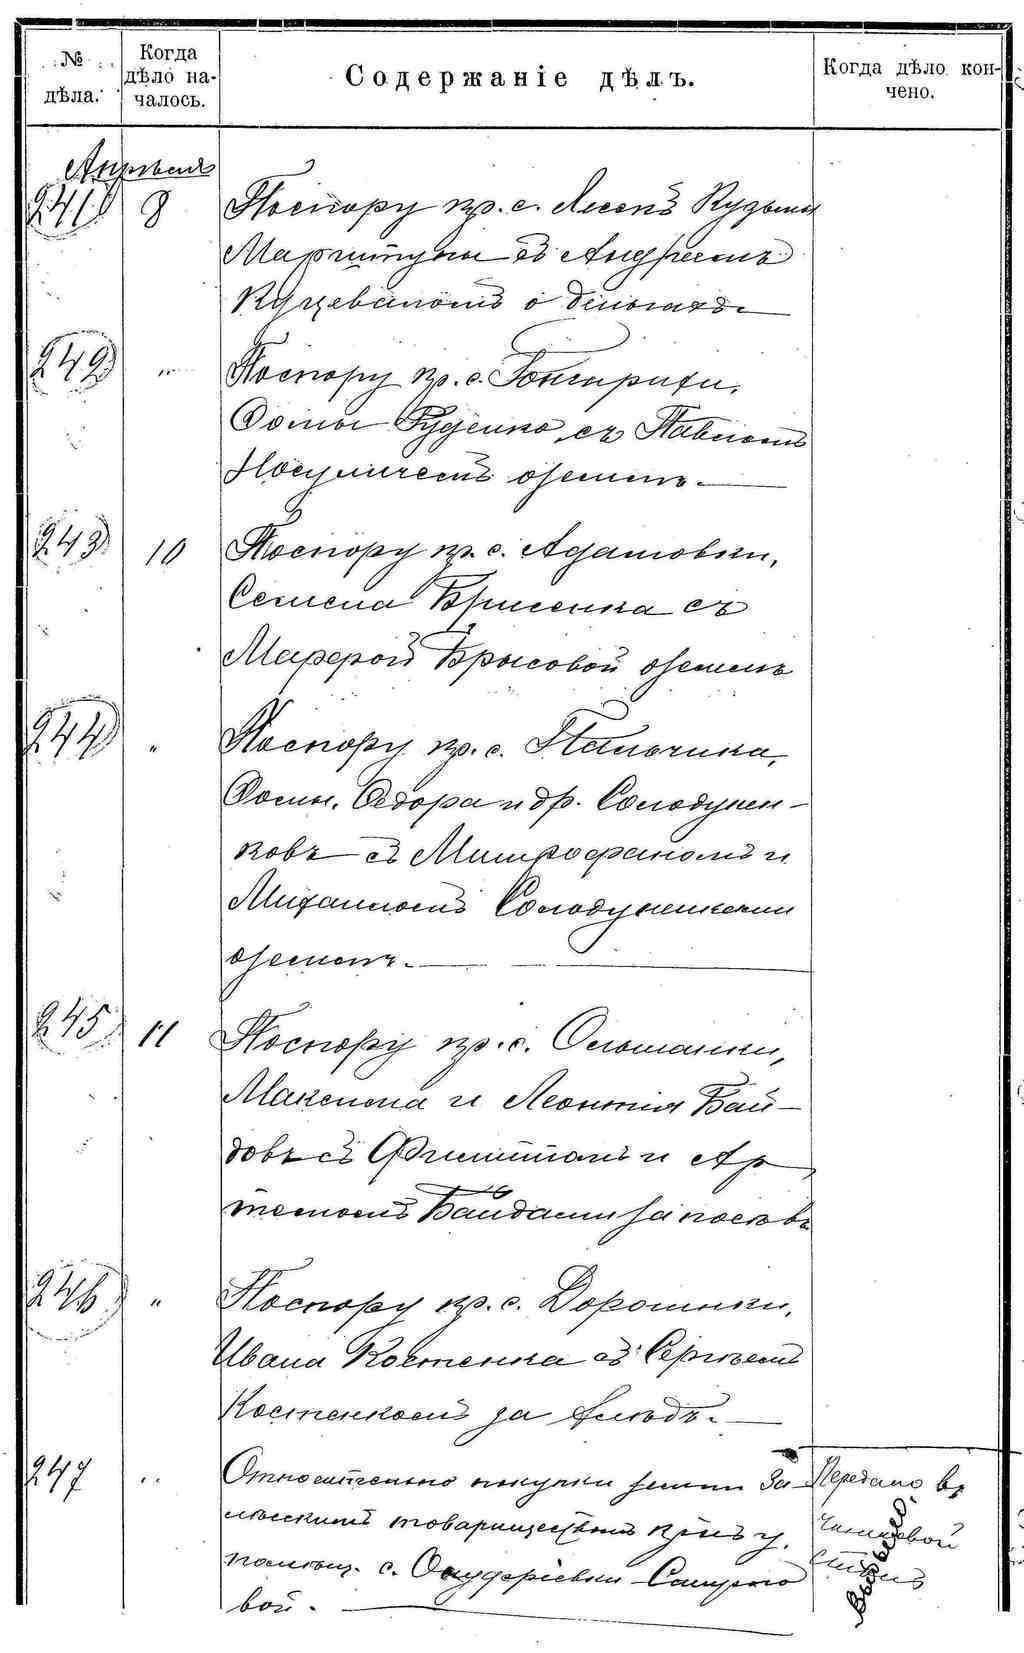 № дѣла.
Когда дѣло началось.
Содержаніе дѣлъ.
Когда дѣло кончено.
Апрѣль
241 8 По спору кр. с. Лесекъ Кузьмы
Мартытуны съ Андреемъ
о деньгахъ
242 " По спору кр. с.
Фомы Руденко съ Павломъ
о землѣ.
243 10 По спору кр. с. Адамовки,
Семена Брисенка съ
Марфой Брысовой о землѣ
244 " По спору кр. с. Пальчика,
Фомы, Федора и др. Солодунен-
ковъ съ Митрофаномъ и
Михаиломъ Солодуненками
о землѣ.
245 11 По спору кр. с. Ольшанки,
Максима и Леонтія Бай-
довъ съ Филиппомъ и Ар
темомъ Байдами за посѣвъ
246 " По спору кр. с. Дорошивки,
Ивана Костенка съ Сергѣемъ
Костенкомъ за хлѣбъ.
247 " Относительно покупки земли За-
лѣсскимъ товариществомъ кр-нъ у
помѣщ. с. Онуфріевки
вой.
Передано въ
столъ
Выбыло.